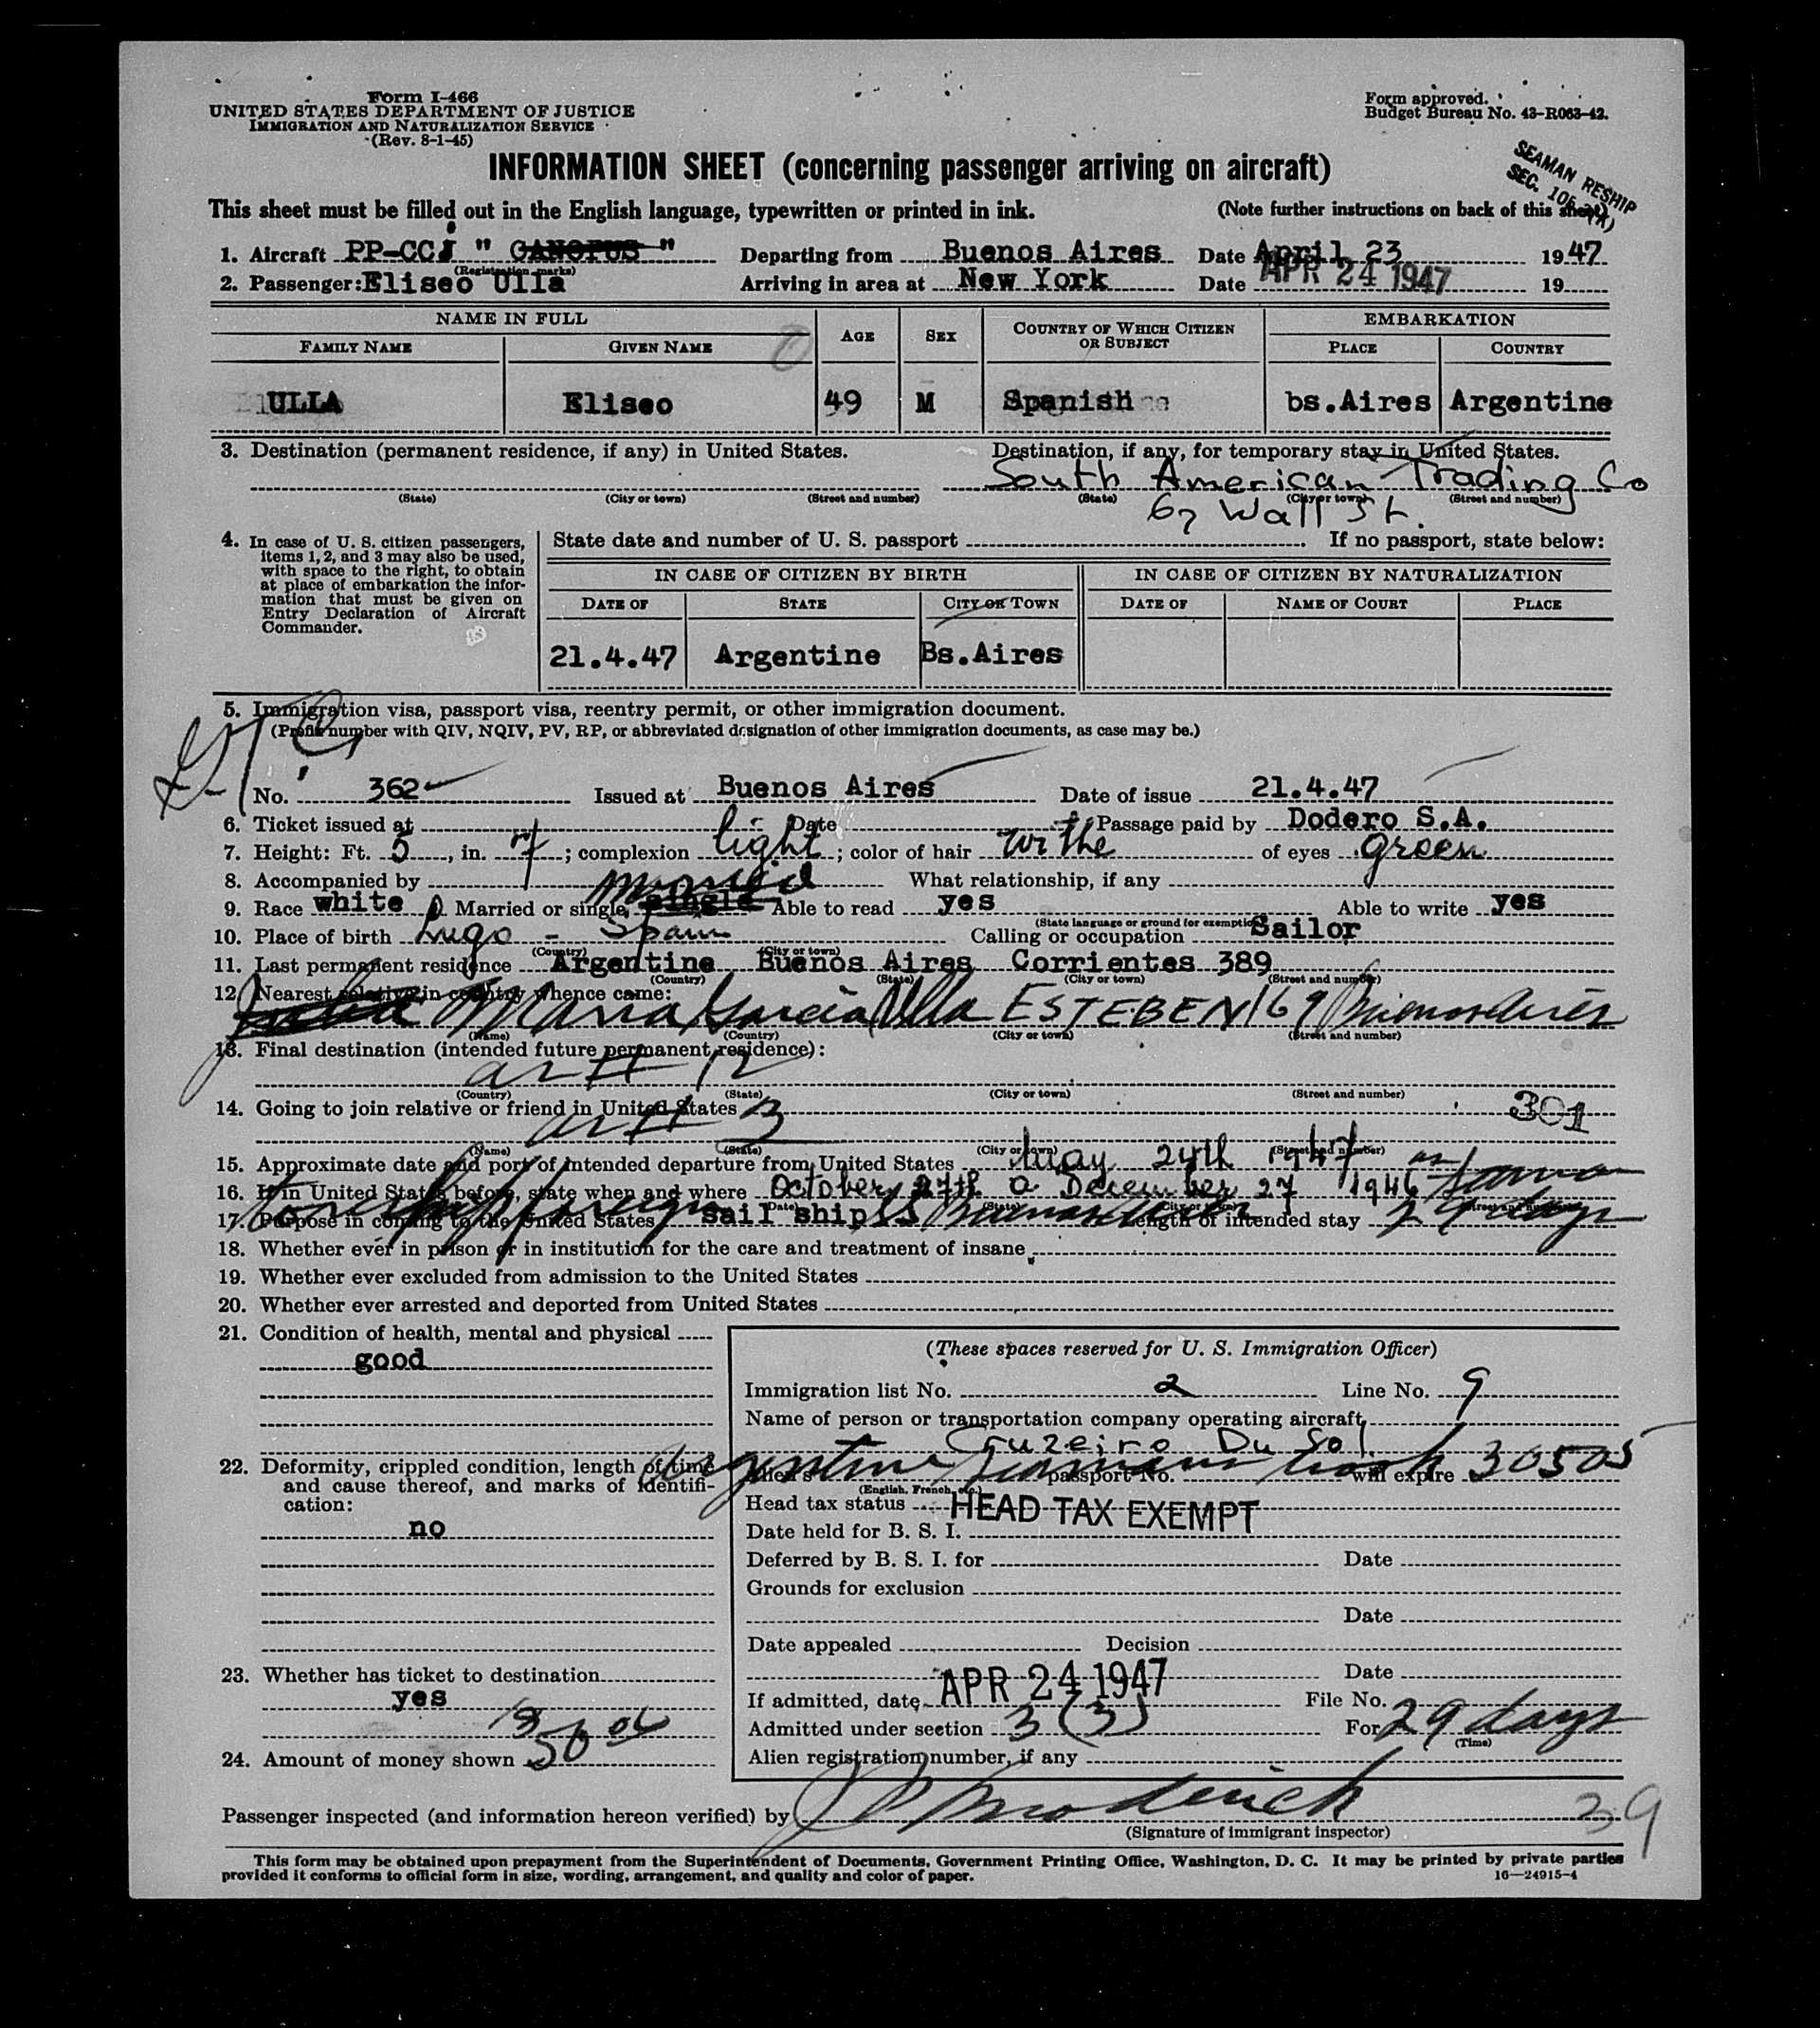 Form I-466
UNITED STATES DEPARTMENT OF JUSTICE
IMMIGRATION AND NATURALIZATION SERVICE
(Rev. 8-1-45)
Form approved.
Budget Bureau No. 43-R063-42.
INFORMATION SHEET (concerning passenger arriving on aircraft)
SEAMAN RESHIP
SEC. 105.3(A)
This sheet must be filled out in the English language, typewritten or printed in ink. (Note further instructions on back of this sheet)
1. Aircraft PP-CCJ " CANOPUS " Departing from Buenos Aires Date April 23 1947
(Registration marks)
2. Passenger: Eliseo Ulla Arriving in area at New York Date APR 24 1947 19
NAME IN FULL AGE SEX COUNTRY OF WHICH CITIZEN OR SUBJECT EMBARKATION
FAMILY NAME GIVEN NAME PLACE COUNTRY
ULLA Eliseo 49 M Spanish bs.Aires Argentine
3. Destination (permanent residence, if any) in United States. Destination, if any, for temporary stay in United States.
South American Trading Co
(State) (City or town) (Street and number) (State) (City or town) (Street and number)
67 Wall St.
4. In case of U. S. citizen passengers, items 1, 2, and 3 may also be used, with space to the right, to obtain at place of embarkation the information that must be given on Entry Declaration of Aircraft Commander.
State date and number of U. S. passport If no passport, state below:
IN CASE OF CITIZEN BY BIRTH IN CASE OF CITIZEN BY NATURALIZATION
DATE OF STATE CITY OR TOWN DATE OF NAME OF COURT PLACE
21.4.47 Argentine Bs.Aires
5. Immigration visa, passport visa, reentry permit, or other immigration document.
(Prefix number with QIV, NQIV, PV, RP, or abbreviated designation of other immigration documents, as case may be.)
No. 362 Issued at Buenos Aires Date of issue 21.4.47
6. Ticket issued at Date Passage paid by Dodero S.A.
7. Height: Ft. 5, in. 7; complexion light; color of hair withe of eyes green
8. Accompanied by What relationship, if any
married
9. Race white Married or single single Able to read yes Able to write yes
(State language or ground for exemption)
10. Place of birth Lugo - Spain Calling or occupation Sailor
(Country) (City or town)
11. Last permanent residence Argentine Buenos Aires Corrientes 389
(Country) (State) (City or town) (Street and number)
12. Nearest relative in country whence came:
Maria Garcia Ulla ESTEBEN 169 Buenos Aires
(Name) (Country) (City or town) (Street and number)
13. Final destination (intended future permanent residence):
(Country) (State) (City or town) (Street and number)
14. Going to join relative or friend in United States 301
(Name) (State) (City or town) (Street and number)
15. Approximate date and port of intended departure from United States May 24th 1947
16. If in United States before, state when and where October 27th a December 27 1946
(Date) (State) (City or town) (Street and number)
17. Purpose in coming to the United States sail ship Length of intended stay 29 days
18. Whether ever in prison or in institution for the care and treatment of insane
19. Whether ever excluded from admission to the United States
20. Whether ever arrested and deported from United States
21. Condition of health, mental and physical
good
22. Deformity, crippled condition, length of time and cause thereof, and marks of identification:
no
23. Whether has ticket to destination
yes
24. Amount of money shown
(These spaces reserved for U. S. Immigration Officer)
Immigration list No. 2 Line No. 9
Name of person or transportation company operating aircraft
Cruzeiro Du Sol
Argentine Seamans book 30505
Alien's passport No. will expire
(English, French, etc.)
Head tax status HEAD TAX EXEMPT
Date held for B. S. I.
Deferred by B. S. I. for Date
Grounds for exclusion
Date
Date appealed Decision
Date
If admitted, date APR 24 1947 File No.
Admitted under section 3 (3) For 29 days
(Time)
Alien registration number, if any
Passenger inspected (and information hereon verified) by J Broderick 39
(Signature of immigrant inspector)
This form may be obtained upon prepayment from the Superintendent of Documents, Government Printing Office, Washington, D. C. It may be printed by private parties
provided it conforms to official form in size, wording, arrangement, and quality and color of paper. 16—24915-4